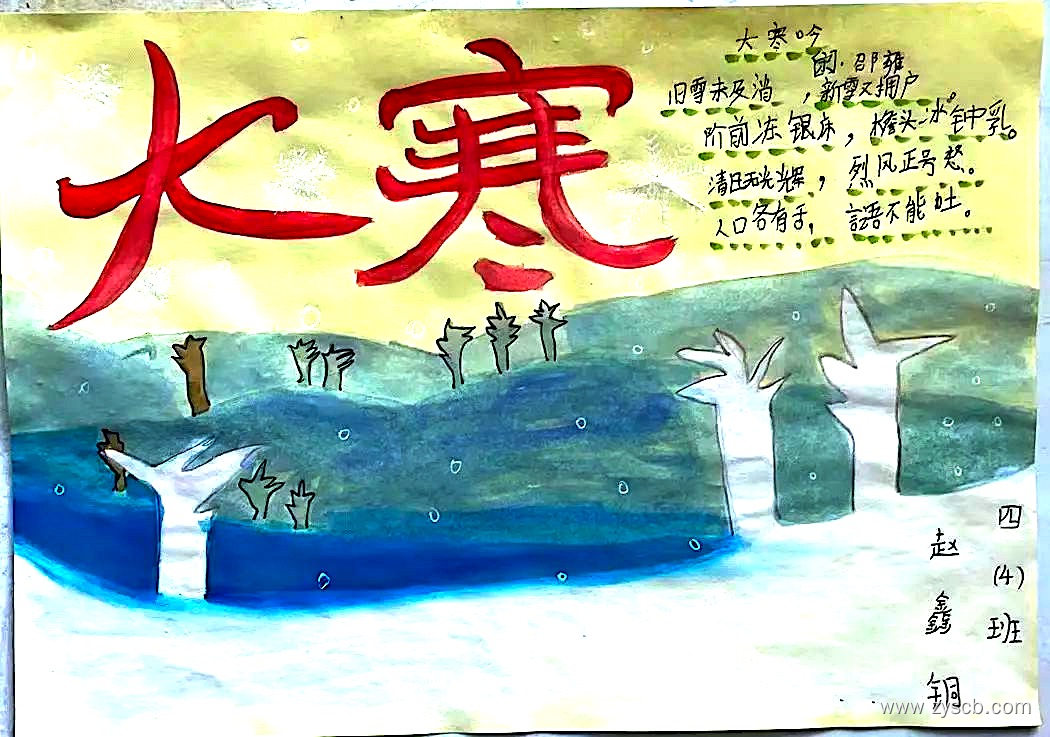 大寒
大寒吟
邵雍
旧雪未及消，新雪又拥户。
阶前冻银床，檐头冰钟乳。
清日无光辉，烈风正号怒。
人口各有舌，言语不能吐。
四(4)班
赵鑫铜
www.zyscb.com